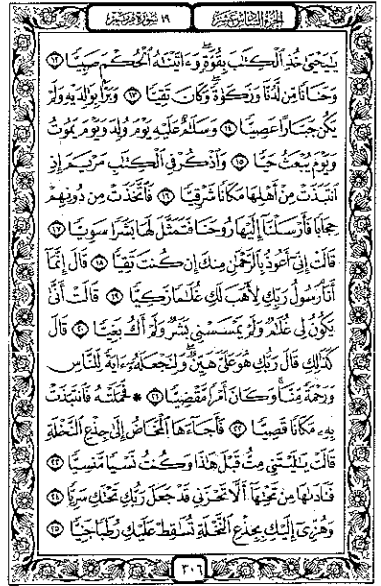 الجزء السادس عشر
١٩ سورة مريم
يَٰيَحۡيَىٰ خُذِ ٱلۡكِتَٰبَ بِقُوَّةٖۖ وَءَاتَيۡنَٰهُ ٱلۡحُكۡمَ صَبِيّٗا ١٢
وَحَنَانٗا مِّن لَّدُنَّا وَزَكَوٰةٗۖ وَكَانَ تَقِيّٗا ١٣ وَبَرَّۢا بِوَٰلِدَيۡهِ وَلَمۡ
يَكُن جَبَّارًا عَصِيّٗا ١٤ وَسَلَٰمٌ عَلَيۡهِ يَوۡمَ وُلِدَ وَيَوۡمَ يَمُوتُ
وَيَوۡمَ يُبۡعَثُ حَيّٗا ١٥ وَٱذۡكُرۡ فِي ٱلۡكِتَٰبِ مَرۡيَمَ إِذِ
ٱنتَبَذَتۡ مِنۡ أَهۡلِهَا مَكَانٗا شَرۡقِيّٗا ١٦ فَٱتَّخَذَتۡ مِن دُونِهِمۡ
حِجَابٗا فَأَرۡسَلۡنَآ إِلَيۡهَا رُوحَنَا فَتَمَثَّلَ لَهَا بَشَرٗا سَوِيّٗا ١٧
قَالَتۡ إِنِّيٓ أَعُوذُ بِٱلرَّحۡمَٰنِ مِنكَ إِن كُنتَ تَقِيّٗا ١٨ قَالَ إِنَّمَآ
أَنَا۠ رَسُولُ رَبِّكِ لِأَهَبَ لَكِ غُلَٰمٗا زَكِيّٗا ١٩ قَالَتۡ أَنَّىٰ
يَكُونُ لِي غُلَٰمٞ وَلَمۡ يَمۡسَسۡنِي بَشَرٞ وَلَمۡ أَكُ بَغِيّٗا ٢٠ قَالَ
كَذَٰلِكِ قَالَ رَبُّكِ هُوَ عَلَيَّ هَيِّنٞۖ وَلِنَجۡعَلَهُۥٓ ءَايَةٗ لِّلنَّاسِ
وَرَحۡمَةٗ مِّنَّاۚ وَكَانَ أَمۡرٗا مَّقۡضِيّٗا ٢١ * فَحَمَلَتۡهُ فَٱنتَبَذَتۡ
بِهِۦ مَكَانٗا قَصِيّٗا ٢٢ فَأَجَآءَهَا ٱلۡمَخَاضُ إِلَىٰ جِذۡعِ ٱلنَّخۡلَةِ
قَالَتۡ يَٰلَيۡتَنِي مِتُّ قَبۡلَ هَٰذَا وَكُنتُ نَسۡيٗا مَّنسِيّٗا ٢٣
فَنَادَىٰهَا مِن تَحۡتِهَآ أَلَّا تَحۡزَنِي قَدۡ جَعَلَ رَبُّكِ تَحۡتَكِ سَرِيّٗا ٢٤
وَهُزِّيٓ إِلَيۡكِ بِجِذۡعِ ٱلنَّخۡلَةِ تُسَٰقِطۡ عَلَيۡكِ رُطَبٗا جَنِيّٗا ٢٥
٣٠٦